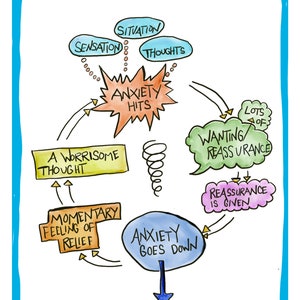 SITUATION
SENSATION
THOUGHTS
ANXIETY
HITS
LOTS
OF
WANTING
REASSURANCE
REASSURANCE
IS GIVEN
ANXIETY
GOES DOWN
MOMENTARY
FEELING OF
RELIEF
A WORRISOME
THOUGHT